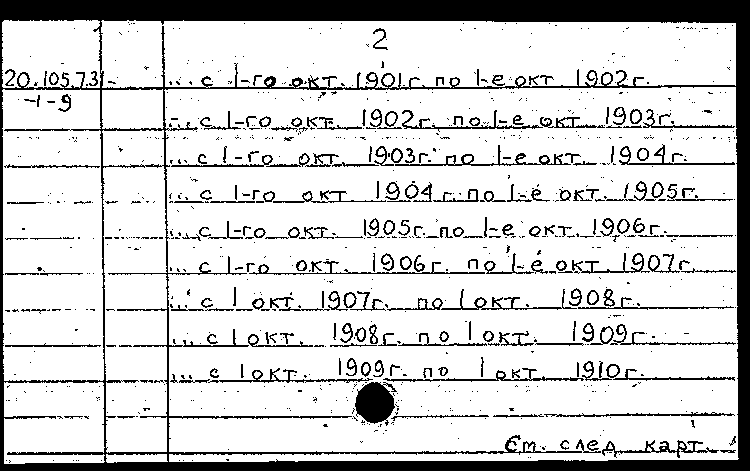 2
20.105.73 - ... с 1-го окт. 1901г. по 1-е окт 1902г.
-1-9
... с 1-го окт. 1902г. по 1-е окт 1903г.
... с 1-го окт. 1903г. по 1-е окт. 1904г.
... с 1-го окт 1904г. по 1-е окт. 1905г.
... с 1-го окт. 1905г. по 1-е окт. 1906г.
... с 1-го окт. 1906г. по 1-е окт. 1907г.
... с 1 окт. 1907г. по 1 окт. 1908г.
... с 1 окт. 1908г. по 1 окт. 1909г.
... с 1 окт. 1909г. по 1 окт. 1910г.
См. след карт.